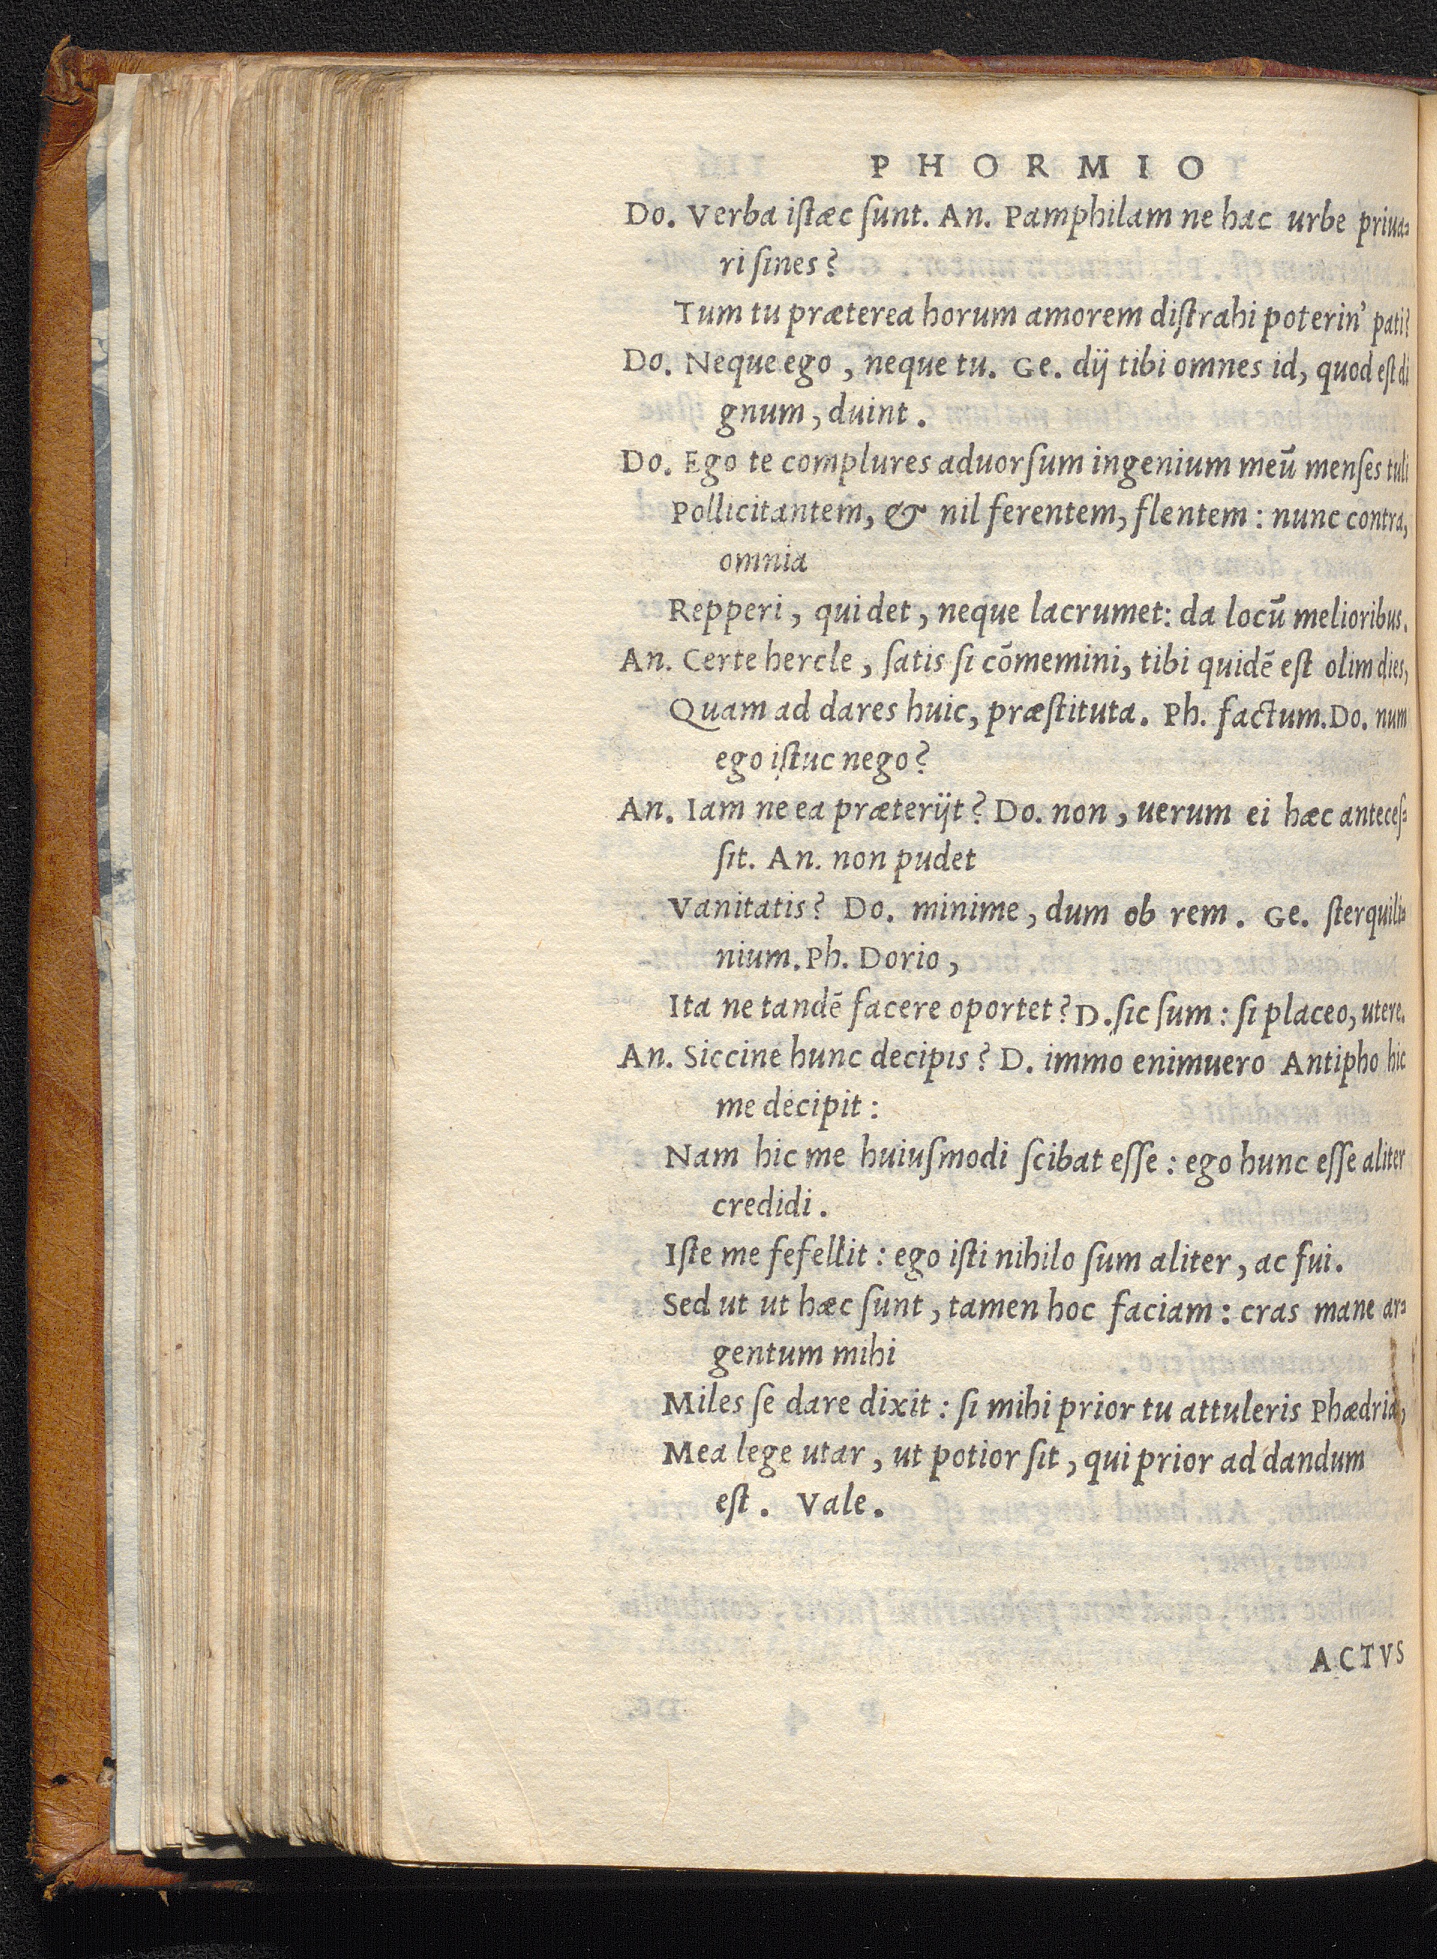 PHORMIO
Do. Verba istæc sunt. An. Pamphilam ne hac urbe priua-
ri sines?
Tum tu præterea horum amorem distrahi poterin' pati?
Do. Neque ego, neque tu. Ge. dij tibi omnes id, quod est di
gnum, duint.
Do. Ego te complures aduorsum ingenium meū menses tuli
Pollicitantem, & nil ferentem, flentem: nunc contra,
omnia
Repperi, qui det, neque lacrumet: da locū melioribus.
An. Certe hercle, satis si cōmemini, tibi quidē est olim dies,
Quam ad dares huic, præstituta. Ph. factum. Do. num
ego istuc nego?
An. Iam ne ea præterijt? Do. non, uerum ei hæc anteces-
sit. An. non pudet
Vanitatis? Do. minime, dum ob rem. Ge. sterquili-
nium. Ph. Dorio,
Ita ne tandē facere oportet? D. sic sum: si placeo, utere.
An. Siccine hunc decipis? D. immo enimuero Antipho hic
me decipit:
Nam hic me huiusmodi scibat esse: ego hunc esse aliter
credidi.
Iste me fefellit: ego isti nihilo sum aliter, ac fui.
Sed ut ut hæc sunt, tamen hoc faciam: cras mane ar-
gentum mihi
Miles se dare dixit: si mihi prior tu attuleris Phædria,
Mea lege utar, ut potior sit, qui prior ad dandum
est. Vale.
ACTVS